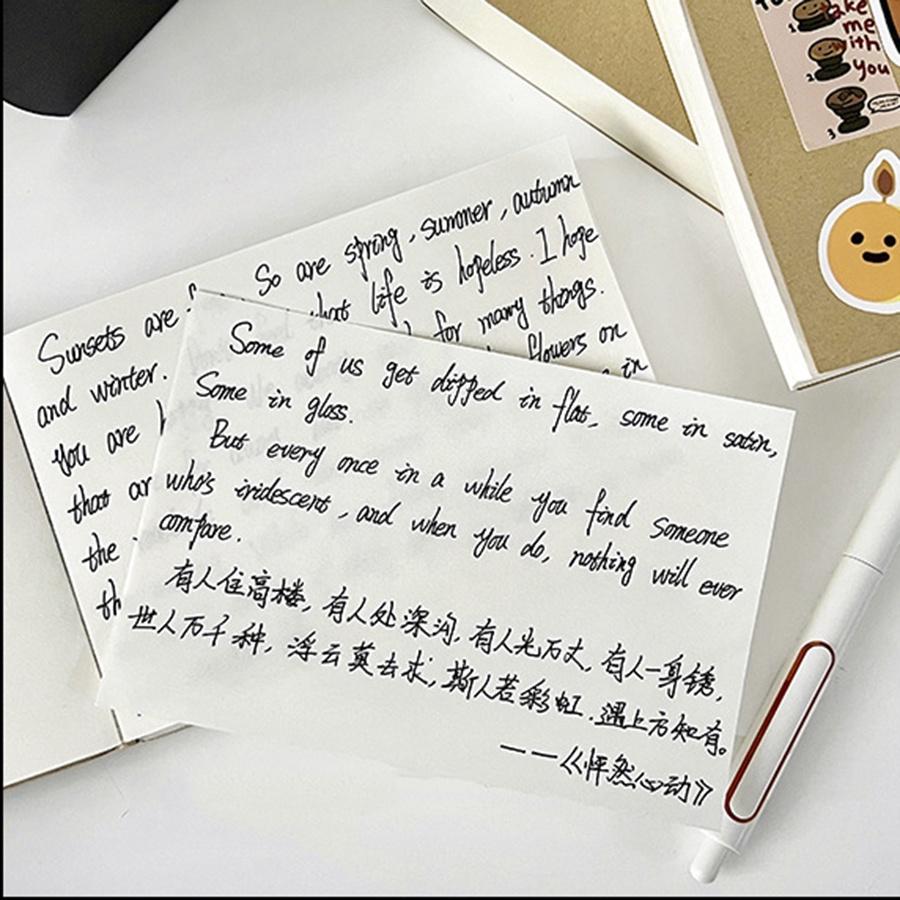 take
me
with
you
1
2
3
Sunsets are
So are spring, summer, autumn
and winter.
that life is hopeless. I hope
you are
for many things.
that
flowers on
the
in
Some of us get dipped in flat, some in satin,
Some in gloss.
But every once in a while you find someone
who's iridescent, and when you do, nothing will ever
compare.
有人住高楼，有人处深沟，有人光万丈，有人一身锈，
世人万千种，浮云莫去求，斯人若彩虹，遇上方知有。
——《怦然心动》